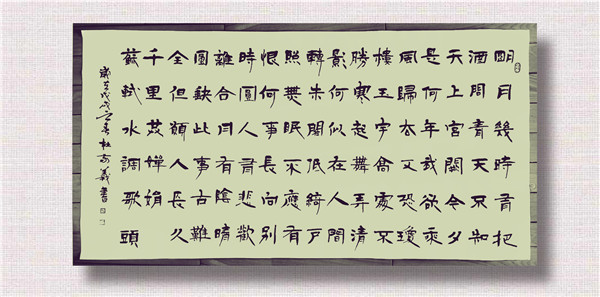 明月幾時有把
酒問青天不知
天上宮闕今夕
是何年我欲乘
風歸去又恐瓊
樓玉宇高處不
勝寒起舞弄清
影何似在人間
轉朱閣低綺戶
照無眠不應有
恨何事長向別
時圓人有悲歡
離合月有陰晴
圓缺此事古難
全但願人長久
千里共嬋娟
蘇軾水調歌頭
歲在戊戌春杜義書